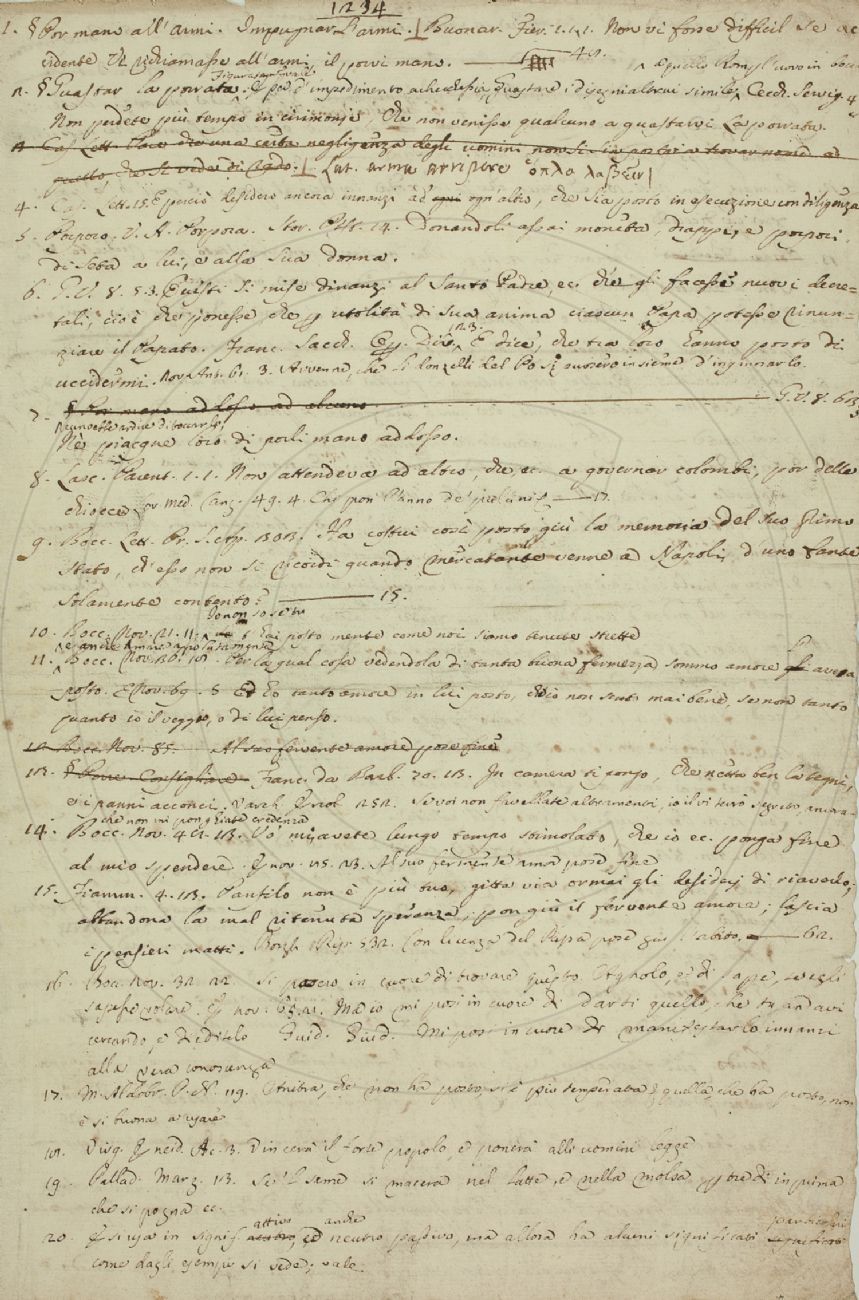 1234
1. § Por mano all'armi. Impugnar l'armi. Buonar. Fier. 1. 1. 1. Non vi fosse difficil se
cidente Vi richiamasse all'armi, il porvi mano. 49.
2. § Guastar la porrata. figuratam. vale impedimento a checchessia, Guastare i disegni altrui simile. Cecch. Servig. 4
Non perdete più tempo in cirimonie, Che non venisse qualcuno a guastarvi La porrata.
Cas. Lett. che una certa negligenza degli uomini non si sia
quello che si vede di Lat. arma arripere ὅπλα λαβεῖν
4. Cas. Lett. 15. E perciò desidero ancora innanzi ad ogni ogn'altro, che sia posto in esecuzione con diligenza
5. Porporo. V. A. Porpora. Stor. 14. Donandoli assai moneta, drappi, e porpori
di Seta a lui, e alla Sua donna.
6. G. V. 8. 5. 3. Questi si mise dinanzi al Santo Padre, ec. che gli facesse nuovi decre-
tali, cioè che ponesse che p utolità di sua anima ciascun Papa potesse rinun-
ziare il Papato. Franc. Sacch. Op. Div. 123. E dice, che tra loro hanno posto di
uccidermi. Nov. Ant. 61. 3. Avvenne, che li donzelli del Po si puosero insieme d'ingiuriarlo.
7. § Por mano addosso ad alcuno G. V. 8. 63
Nè piacque loro di porli mano addosso.
8. Lasc. Parent. 1. 1. Non attendeva ad altro, che ec. a governar colombi, por delle
chiocce Lor. Med. Canz. 49. 4. Chi pon l'anno de' 17.
9. Bocc. Lett. Pr. S. Ap. 303. Ha costui così posto giù la memoria del suo primo
stato, ch'esso non si ricordi quando mercatante venne a Napoli, d'uno fante
solamente contento? 15.
Io non so se tu
10. Bocc. Nov. 21. 11. t'hai posto mente come noi siamo tenute strette
11. Bocc. Nov. 20. 18. Per la qual cosa vedendola di tanta buona fermezza sommo amore l' aveva
posto. E Nov. 69. 8 Ed Ho tanto amore in lui posto, ch'io non sento mai bene, se non tanto
quanto io il veggio, o di lui penso.
12. Bocc. Nov. 85. Al suo fervente amore pose fine
13. § Porre Consigliare Franc. da Barb. 20. 13. In camera ti pongo, Che netta ben la tegni,
e i panni acconci. Varch. Ercol. 252. Se voi non favellate altramenti, io il vi terrò segreto, ancora-
che non mi ponghiate credenza
14. Bocc. Nov. 49. 13. Voi m'avete lungo tempo stimolato, che io ec. ponga fine
al mio spendere. E nov. 15. 23. Al suo fervente amor pose fine
15. Fiamm. 4. 13. Panfilo non è più tuo, gitta via ormai gli desiderj di riaverlo;
abbandona la mal ritenuta speranza, pon giù il fervente amore; lascia
i pensieri matti. Borgh. Rip. 532. Con licenza del Papa pose giù l'abito. 62.
16. Bocc. Nov. 32. 22. Si pose in cuore di trovare questo Agnolo, e di sape, se egli
sapesse volare. E nov. 68. 21. Ma io mi posi in cuore di darti quello, che tu andavi
cercando, e dieditelo Guid. Giud. Mi posi in cuore di manifestarlo innanzi
alla vera conoscenza
17. M. Aldobr. P. N. 119. Anitra, che non ha posto, si è più temperata; quella, che ha posto, non
è si buona a usare
18. Virg. Eneid. Ac. 3. Vincerà il forte popolo, e ponerà alli uomini legge
19. Pallad. Marz. 13. Se 'l seme si macera nel latte, e nella molsa tre dì in prima
che si pogna ec.
20. E si usa in signif. attivo, ed anche neutro passivo, ma allora ha alcuni significati particolari
come dagli esempi si vede; vale